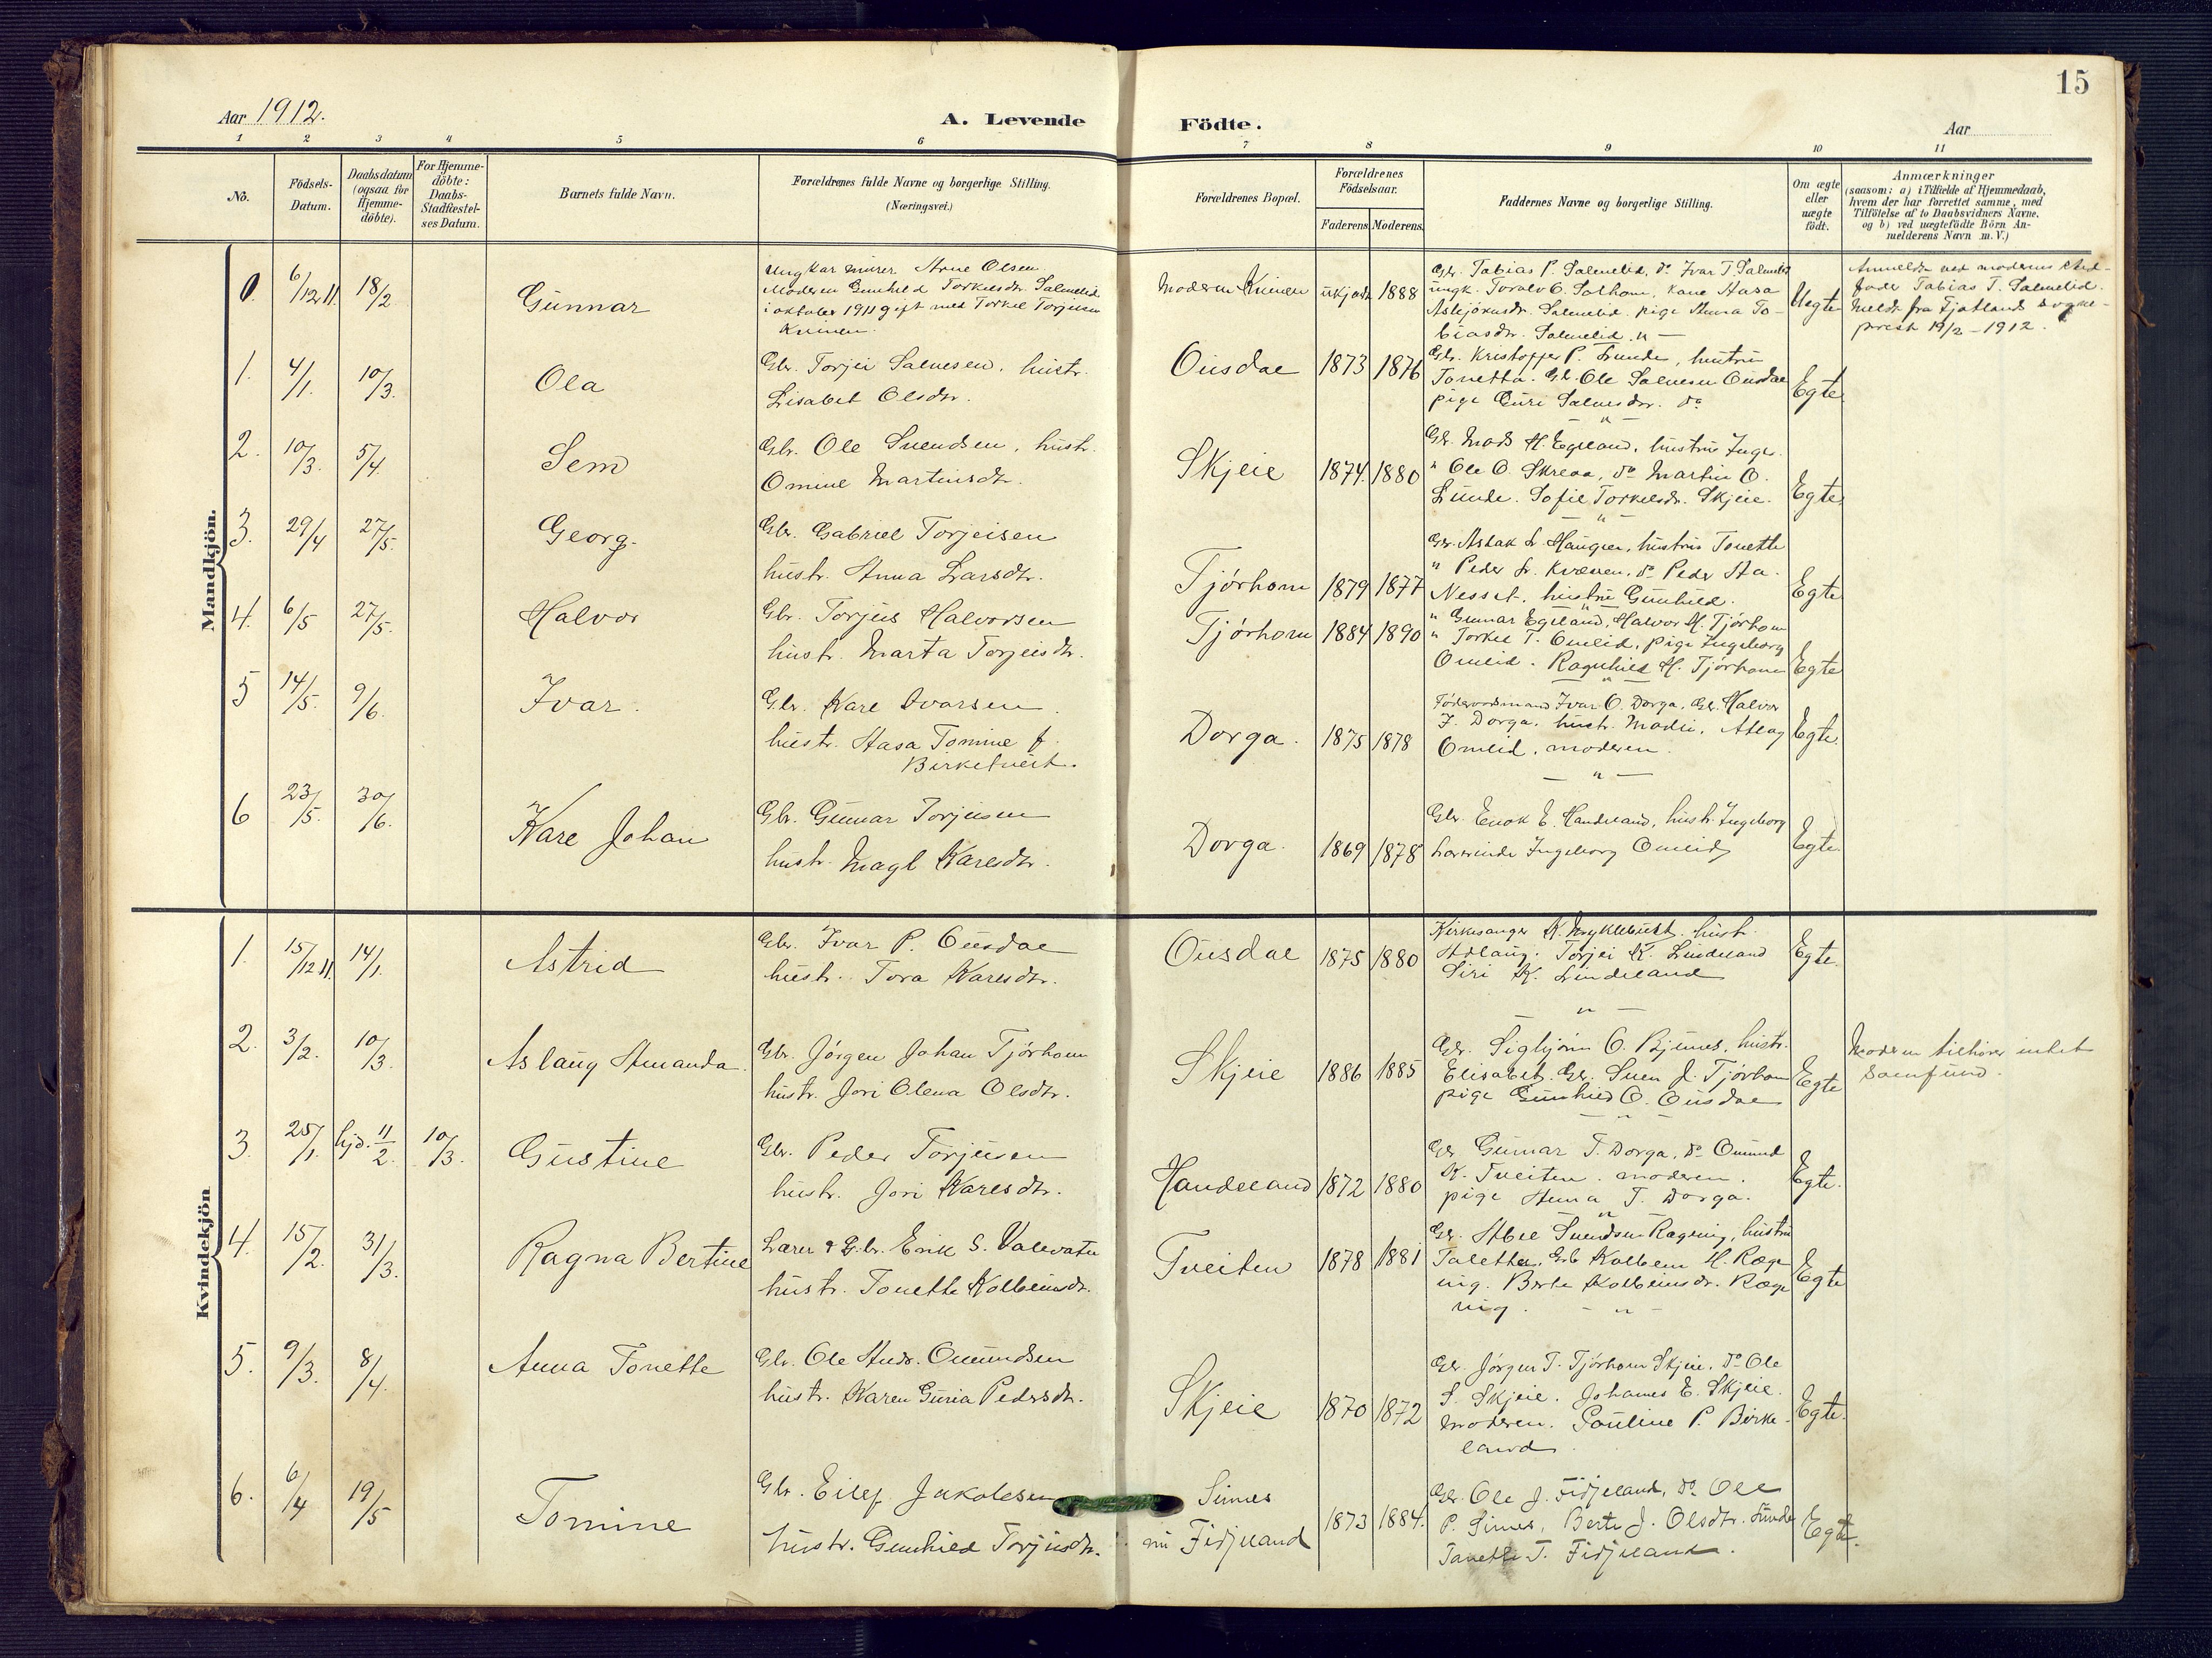 15
Aar 1912.
A. Levende Födte.
Aar
1 2 3 4 5 6 7 8 9 10 11
No.
Födsels-
Datum.
Daabsdatum
(ogsaa for
Hjemme-
döbte).
For Hjemme-
döbte:
Daabs-
Stadfæstel-
ses Datum.
Barnets fulde Navn.
Forældrenes fulde Navne og borgerlige Stilling.
(Næringsvei.)
Forældrenes Bopæl.
Forældrenes
Födselsaar.
Faderens. Moderens.
Faddernes Navne og borgerlige Stilling.
Om ægte
eller
uægte
födt.
Anmærkninger
(saasom: a) i Tilfælde af Hjemmedaab,
hvem der har forrettet samme, med
Tilföielse af to Daabsvidners Navne,
og b) ved uægtefödte Börn An-
melderens Navn m. V.)
Mandkjön.
0. 6/12 11. 18/2
Gunnar
Ungkar murer Arne Olsen
Moderen Gunhild Torkelsdr. Salmelid
i oktober 1911 gift med Torkel Torjusen
Kninen.
Moderen Kninen
ukjendt 1888
Gbr. Tobias P. Salmelid, do Ivar T. Salmelid
ungk. Toralv O. Solhom, kone Aasa
Asbjörnsdr. Salmelid. pige Anna To-
biasdr. Salmelid. "
Uegte
Anmeldt ved moderens
fader Tobias T. Salmelid.
Meldt fra Fjotlands sogne-
prest 19/2 - 1912.
1. 4/1. 10/3.
Ola
Gbr. Torjei Salvesen, hustr.
Lisabet Olsdr.
Ousdal
1873 1876
Gbr. Kristoffer P. Lunde, hustru
Tonetta. Gb. Ole Salvesen Ousdal
pige Guri Salvesdr. do
Egte
2. 10/3. 5/4.
Sem
Gbr. Ole Svendsen, hustr.
Omine Martinsdr.
Skjeie
1874. 1880
Gb. Mads H. Egeland, hustru Inge.
" Ole O. Skreaa, do Martin O.
Lunde. Sofie Torkelsdr. Skjeie.
Egte
3. 29/4 27/5.
Georg.
Gbr. Gabriel Torjeisen
hustr. Anna Larsdtr.
Tjörhom
1879 1877
Gbr. Aslak L. Haugen, hustru Tonette
" Peder L. Kvæven, do Peder Aa.
Nesset. hustru Gunhild.
Egte
4. 6/5 27/5.
Halvor
Gbr. Torjus Halvorsen
hustr. Marta Torjeisdtr.
Tjörhom
1884 1890
" Gunnar Egeland, Halvor H. Tjörhom
" Torkel T. Omlid, pige Ingeborg
Omlid. Ragnhild H. Tjörhom
Egte
5 14/5. 9/6.
Ivar.
Gbr. Karl Ivarsen.
hustr. Aasa Tomine f.
Birketveit.
Dorga.
1875 1878
Föderaadsmand Ivar O. Dorga, Gb. Halvor
J. Dorga, hustr. Madli, Atlag
Omlid, moderen.
Egte.
6 23/5. 30/6.
Kare Johan
Gbr. Gunnar Torjusen
hustr. Magl Karlsdtr.
Dorga.
1869 1878
Gbr. Enok E. Handeland, hustr. Ingeborg
Lærerinde Ingeborg Omlid
Egte.
Kvindekjön
1. 15/12 11. 14/1.
Astrid
Gbr. Ivar P. Ousdal
hustr. Tora Karlsdtr.
Ousdal
1875 1880
Kirkesanger K. Myklebust. hustr.
Aslaug. Torjei K. Lindeland
Siri K. Lindeland
Egte.
2. 3/2. 10/3.
Aslaug Amanda.
Gbr. Jörgen Johan Tjörhom
hustr. Jori Olena Olsdtr.
Skjeie
1886 1885
Gbr. Sigbjörn O. Bjunes, hustr.
Elisabet. Gb. Sven J. Tjörhom
pige Gunhild O. Ousdal
Egte
Moderen tilhører intet
Samfund.
3. 25/1. hjd. 11/2. 10/3.
Gustine
Gbr. Peder Torjusen
hustr. Jori Karlsdtr.
Handeland
1872 1880
Gb. Gunnar T. Dorga, do Omund
K. Tveiten. moderen.
pige Anna T. Dorga.
Egte.
4. 15/2. 31/3.
Ragna Bertine
Lærer & Gbr. Erik S. Valevatn
hustr. Tonette Kolbeinsdr.
Tveiten
1878 1881
Gb. Abel Svendsen Rægning, hustru
Talette, Gb Kolbein H. Ræge
nig. Berte Kolbeinsdr. Ræge
nig. "
Egte
5. 9/3. 8/4.
Anna Tonette
Gbr. Ole Andr. Omundsen
hustr. Karen Guria Pedersdtr.
Skjeie
1870 1872
Gb. Jörgen T. Tjörhom Skjeie, do Ole
S. Skjeie. Johannes E. Skjeie.
Moderen. Pauline P. Birke-
land.
Egte.
6. 6/4 19/5
Tomine
Gbr. Eilef Jakobsen
hustr. Gunhild Torjusdtr.
Sirnes
nu Fidjeland
1873 1884.
Gb. Ole J. Fidjeland, do Ole
P. Sirnes, Berte J. Olsdtr. Lunde
Tonette T. Fidjeland.
Egte.